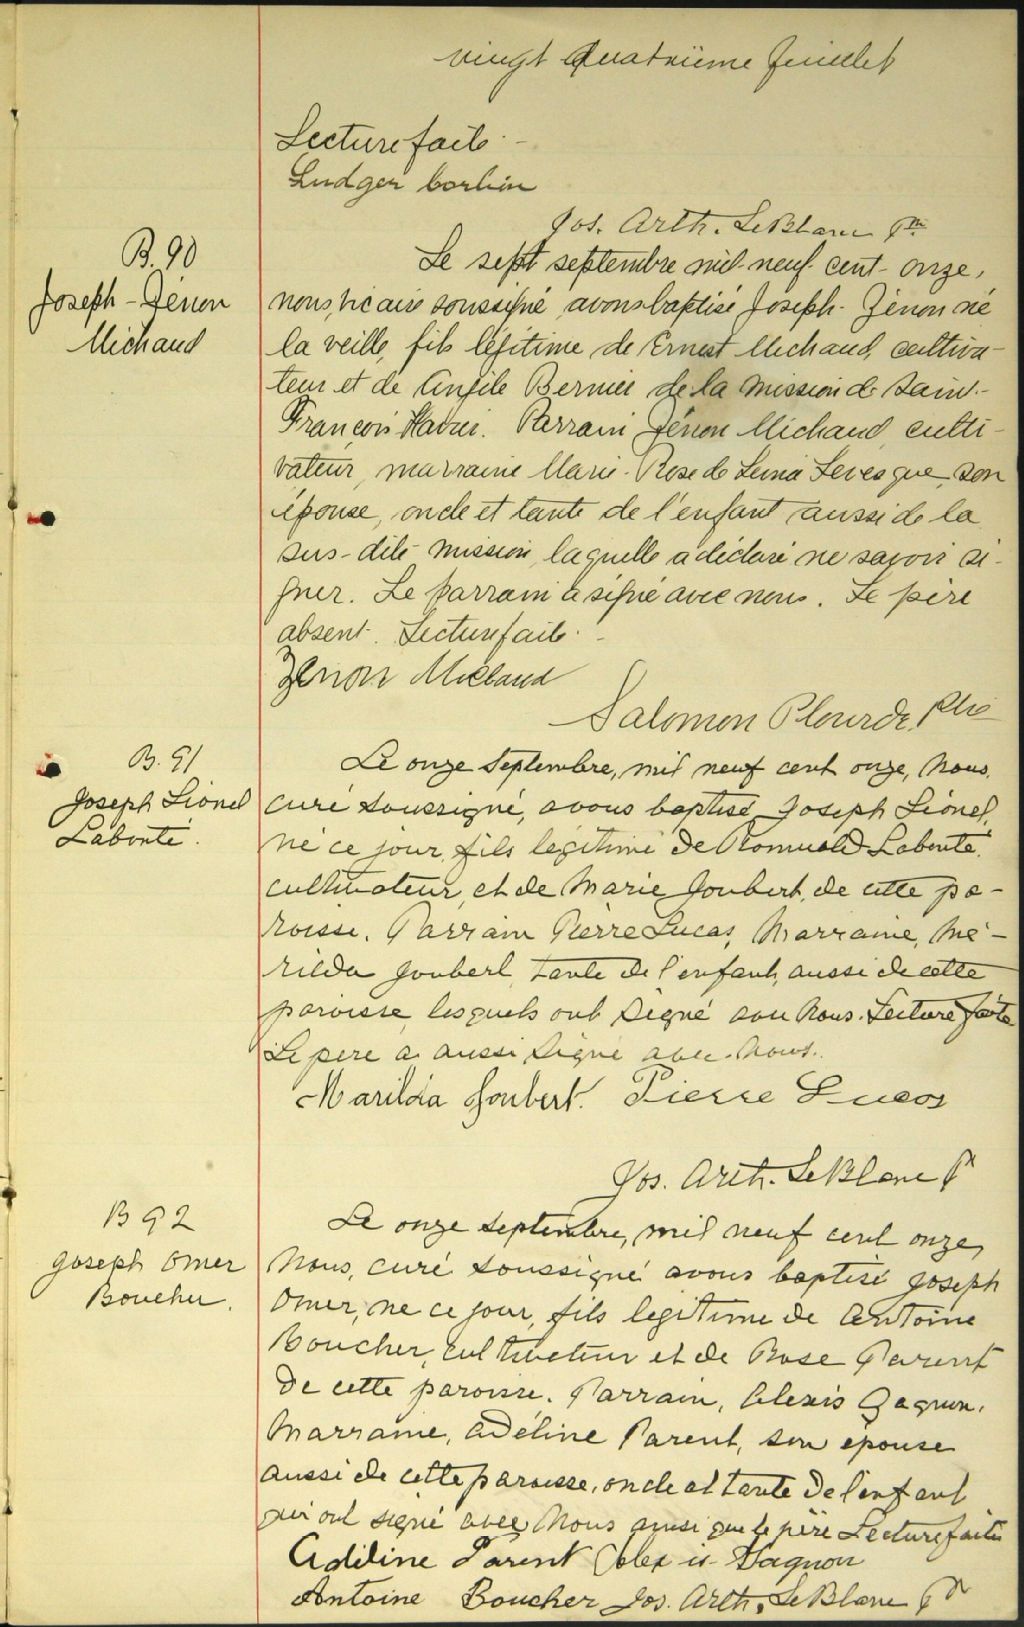 vingt quatrième feuillet
Lecture faite -
Ludger Corbin
Jos. Arth. LeBlanc Ptr
B. 90
Joseph-Zénon
Michaud
Le sept septembre mil-neuf-cent-onze,
nous, vicaire soussigné avons baptisé Joseph-Zénon né
la veille, fils légitime de Ernest Michaud, cultiva-
teur et de Angèle Bernier de la mission de Saint-
François Xavier. Parrain Zénon Michaud culti-
vateur, marraine Marie-Rose de Lima Levesque, son
épouse, oncle et tante de l'enfant aussi de la
sus-dite mission, laquelle a déclaré ne savoir si-
gner. Le parrain a signé avec nous. Le père
absent. Lecture faite.
Zénon Michaud
Salomon Plourde, Ptre
B. 91
Joseph Lionel
Labonté.
Le onze septembre, mil neuf cent onze, Nous,
curé soussigné, avons baptisé Joseph Léonel,
né ce jour, fils légitime de Romuald Labonté,
cultivateur, et de Marie Joubert, de cette pa-
roisse. Parrain Pierre Lucas, Marraine, Ma-
rilda Joubert, tante de l'enfant, aussi de cette
paroisse, lesquels ont signé avec Nous. Lecture faite
Le pere a aussi signé avec Nous.
Marilda Joubert. Pierre Lucas
Jos. Arth. LeBlanc Pr
B 92
Joseph Omer
Boucher.
Le onze septembre, mil neuf cent onze,
Nous, curé soussigné avons baptisé Joseph
Omer, né ce jour, fils légitime de Antoine
Boucher, cultivateur et de Rose Parent
de cette paroisse. Parrain, Alexis Gagnon,
Marraine, Adéline Parent, son épouse
aussi de cette paroisse, oncle et tante de l'enfant
qui ont signé avec Nous ainsi que le père Lecture faite
Adéline Parent Alexis Gagnon
Antoine Boucher Jos. Arth. LeBlanc Pr